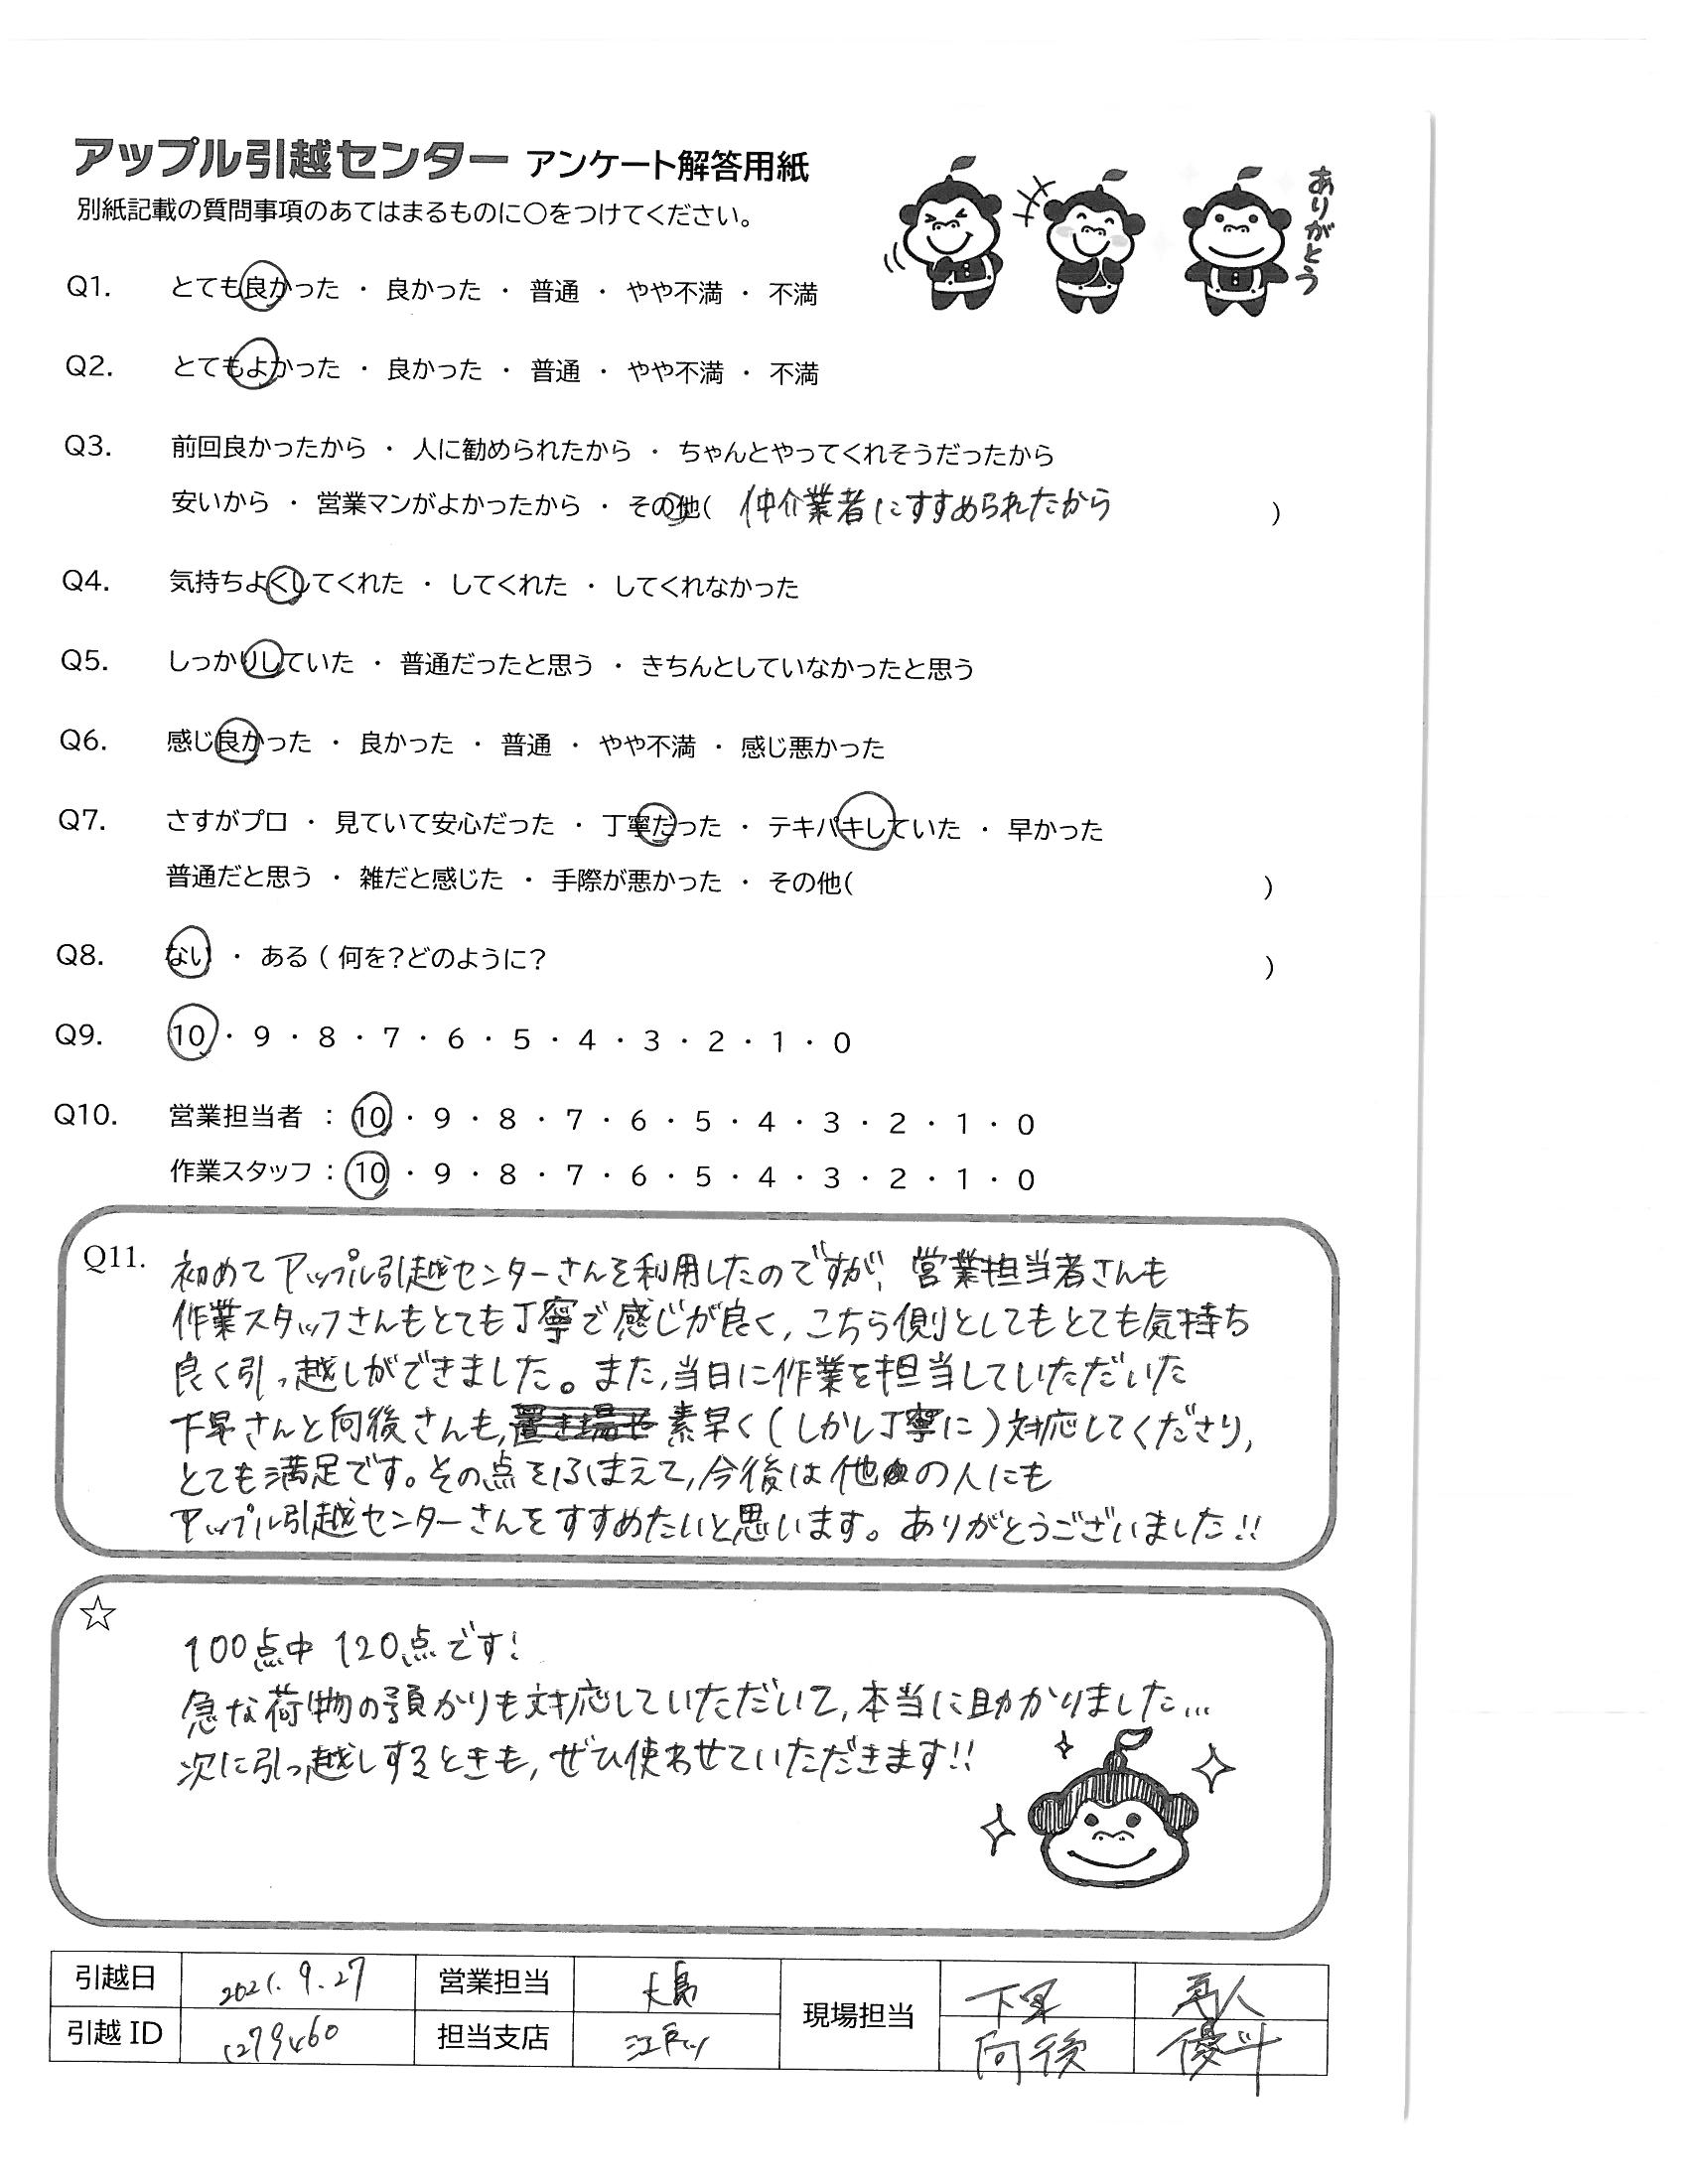 アップル引越センター アンケート解答用紙
別紙記載の質問事項のあてはまるものに○をつけてください。
ありがとう
Q1. とても良かった ・ 良かった ・ 普通 ・ やや不満 ・ 不満
Q2. とてもよかった ・ 良かった ・ 普通 ・ やや不満 ・ 不満
Q3. 前回良かったから ・ 人に勧められたから ・ ちゃんとやってくれそうだったから
安いから ・ 営業マンがよかったから ・ その他( 仲介業者にすすめられたから )
Q4. 気持ちよくしてくれた ・ してくれた ・ してくれなかった
Q5. しっかりしていた ・ 普通だったと思う ・ きちんとしていなかったと思う
Q6. 感じ良かった ・ 良かった ・ 普通 ・ やや不満 ・ 感じ悪かった
Q7. さすがプロ ・ 見ていて安心だった ・ 丁寧だった ・ テキパキしていた ・ 早かった
普通だと思う ・ 雑だと感じた ・ 手際が悪かった ・ その他( )
Q8. ない ・ ある ( 何を?どのように? )
Q9. 10 ・ 9 ・ 8 ・ 7 ・ 6 ・ 5 ・ 4 ・ 3 ・ 2 ・ 1 ・ 0
Q10. 営業担当者 : 10 ・ 9 ・ 8 ・ 7 ・ 6 ・ 5 ・ 4 ・ 3 ・ 2 ・ 1 ・ 0
作業スタッフ : 10 ・ 9 ・ 8 ・ 7 ・ 6 ・ 5 ・ 4 ・ 3 ・ 2 ・ 1 ・ 0
Q11. 初めてアップル引越センターさんを利用したのですが、営業担当者さんも
作業スタッフさんもとても丁寧で感じが良く, こちら側としてもとても気持ち
良く引っ越しができました。また, 当日に作業を担当していただいた
さんと向後さんも, 素早く(しかし丁寧に)対応してくださり,
とても満足です。その点をふまえて, 今後は他の人にも
アップル引越センターさんをすすめたいと思います。ありがとうございました!!
☆
100点中 120点です!
急な荷物の預かりも対応していただいて, 本当に助かりました...
次に引っ越しするときも, ぜひ使わせていただきます!!
引越日 2021.9.27 営業担当 大島 現場担当
引越ID 1279460 担当支店 江戸川 向後 優斗